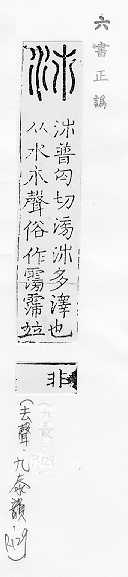 六書正譌
沛普匄切滂沛多澤也
从水巿聲俗作霶霈竝
非
(去聲·九泰韻)
P.129